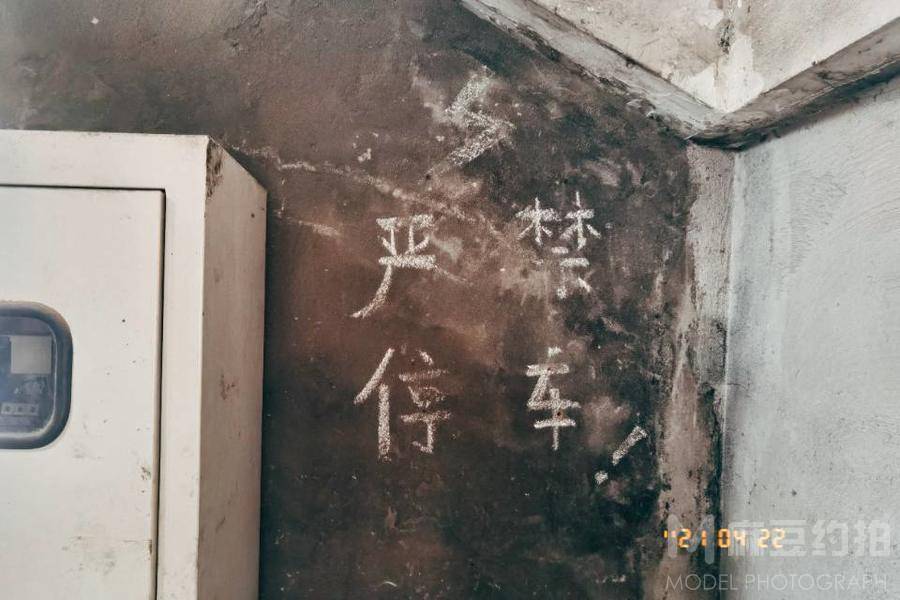 严禁
停车!
'21 04 22
麻豆约拍
MODEL PHOTOGRAPH